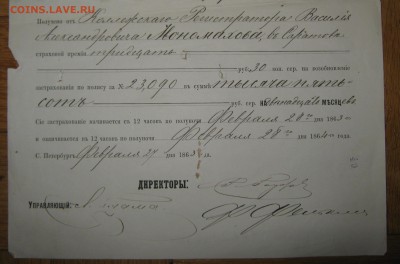 COINS.LAV.RU
Получено отъ Коллежскаго Регистратора Василія
Александровича Мономахова, въ Саратовѣ
страховой преміи тридцать
руб. 30 коп. сер. на возобновленіе
застрахованія по полису за № 23,090 въ суммѣ тысяча пять-
сотъ руб. сер. на двѣнадцать мѣсяцевъ
Сіе застрахованіе начинается съ 12 часовъ по полуночи Февраля 28го дня 1863
и оканчивается въ 12 часовъ по полуночи Февраля 28го дня 1864 года.
С. Петербургъ Февраля 27 дня 1863 года.
ДИРЕКТОРЫ:
УПРАВЛЯЮЩІЙ: